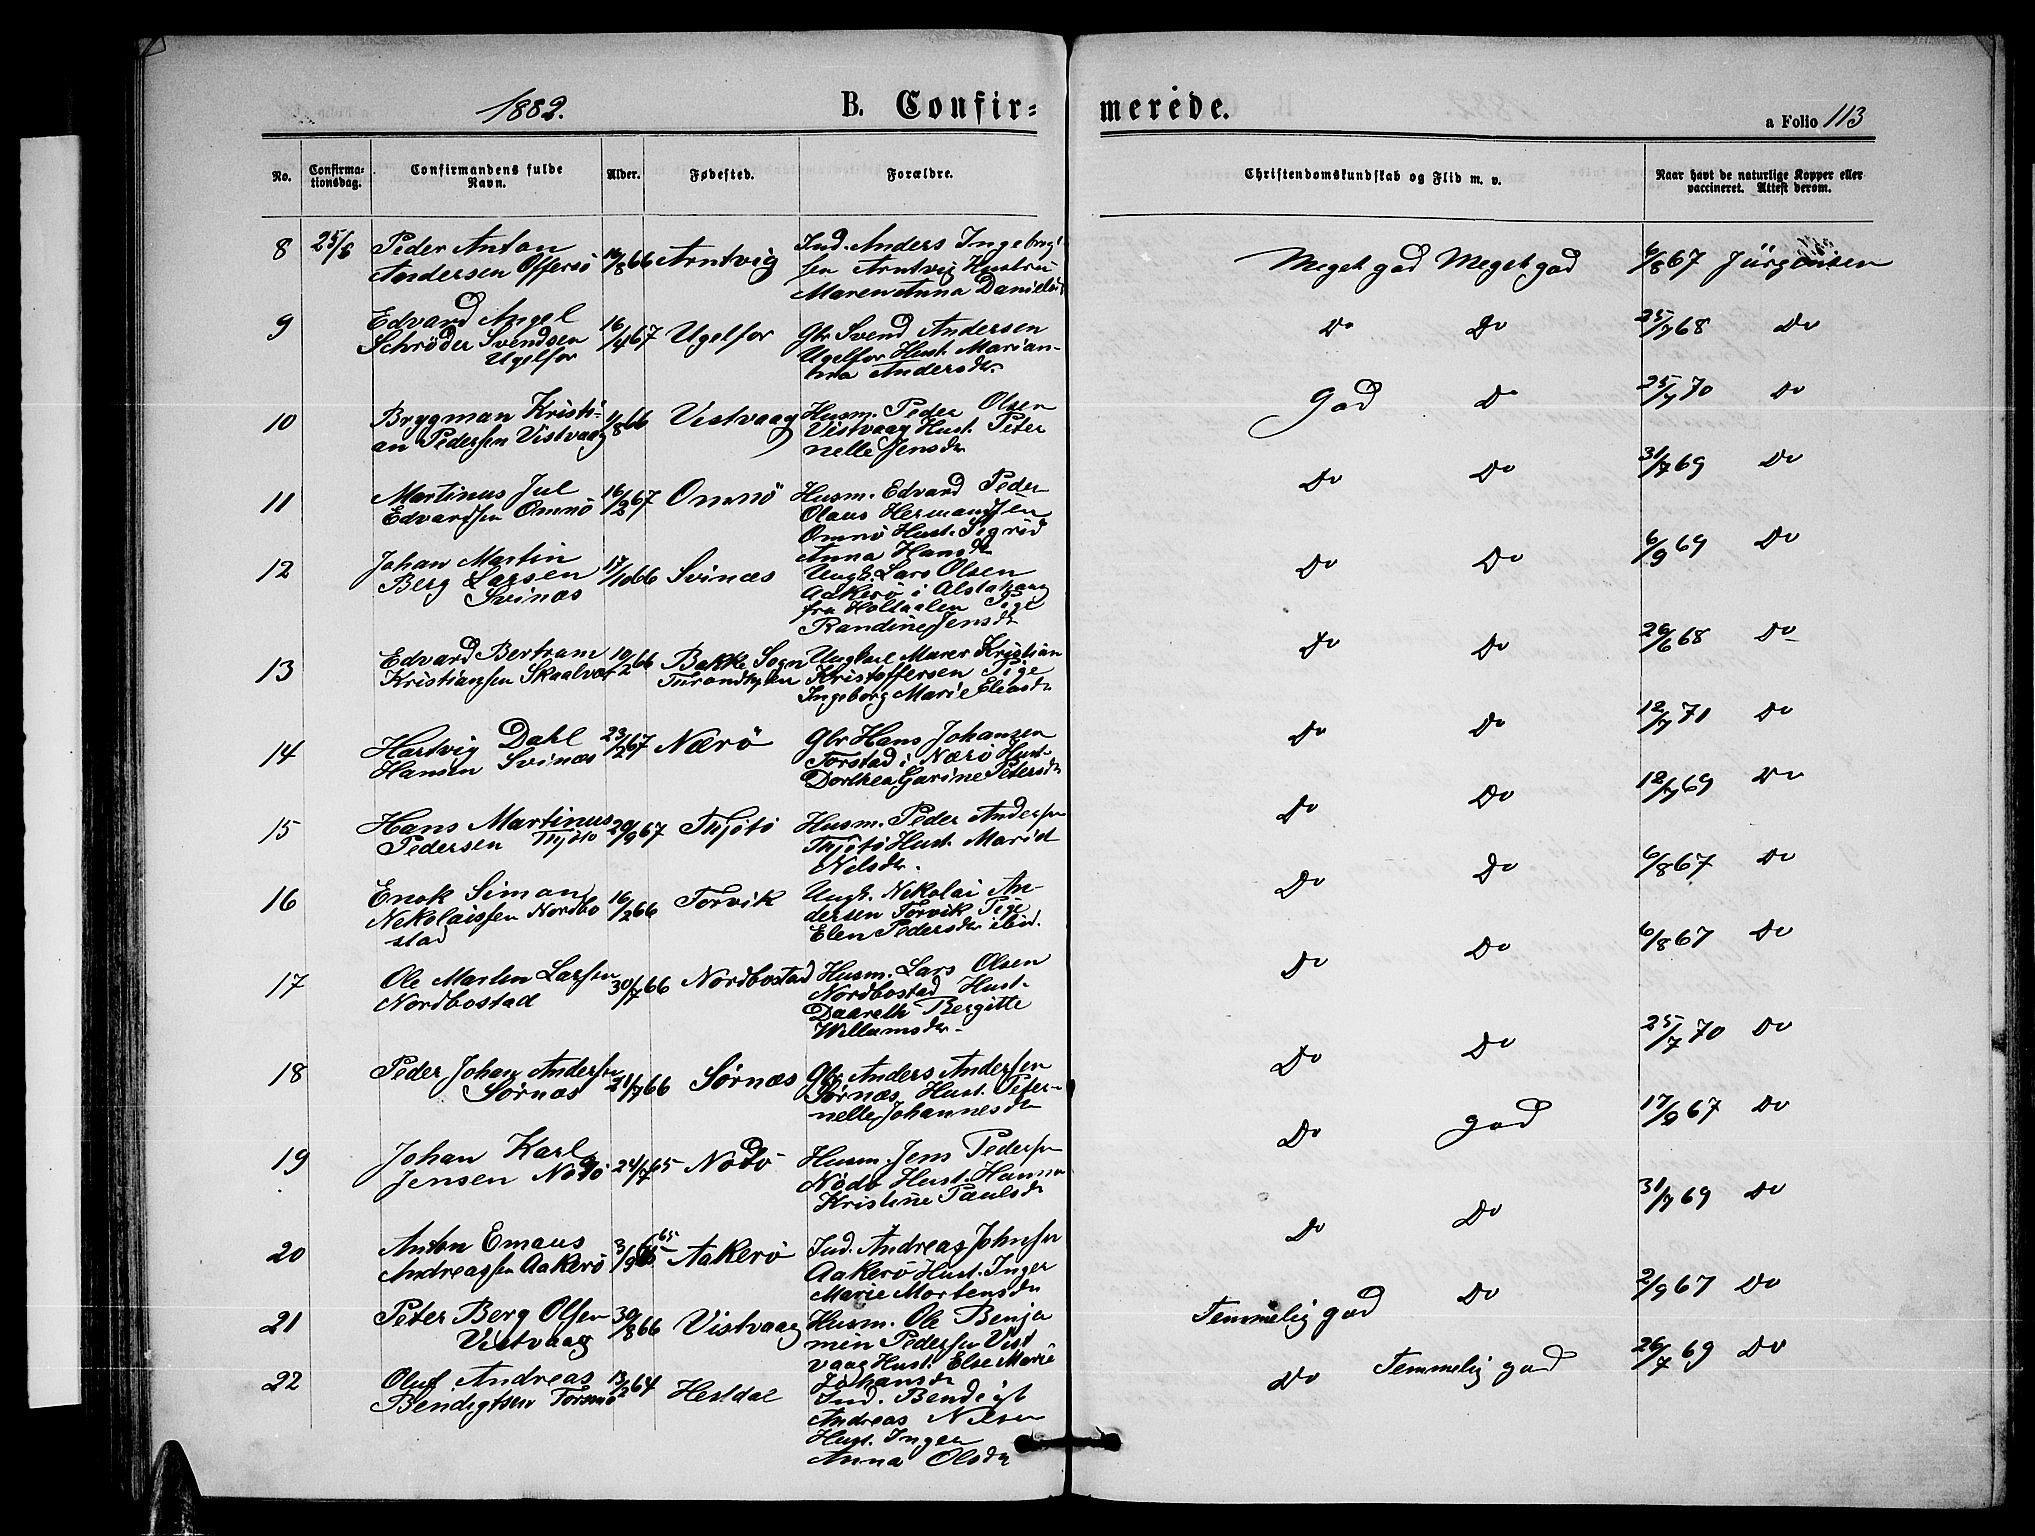 1882.
B. Confir=
merede.
a Folio 113
No.
Confirma-
tionsdag.
Confirmandens fulde
Navn.
Alder.
Fødested.
Forældre.
Christendomskundskab og Flid m. v.
Naar havt de naturlige Kopper eller
vaccineret. Attest derom.
8 25/6 Peder Anton
Andersen Offersö
/866 Arntvig
Ind. Anders Ingebrigt
sen Arntvig Hustru
Maren Anna Danielsd
Meget god Meget god 6/8 67 Jürgensen
9 Edvard Angel
Schrøder Svendsen
Ugelfor
16/4 67 Ugelfor
Gbr Svend Andersen
Ugelfor Hust. Marian-
na Andersdr.
Do Do 25/7 68 Do
10 Brygman Kristi-
an Pedersen Vistvaag
/8 66 Vistvaag
Husm. Peder Olsen
Vistvaag Hust. Peter
nelle Jensdr
God Do 25/7 70 Do
11 Martinus Jul
Edvardsen Omnö
16/2 67 Omnö
Husm. Edvard Peder
Olaus Hermandsen
Omnö Hust. Sigrid
Anna Hansdr
Do Do 31/7 69 Do
12 Johan Martin
Berg Larsen
Svinæs
17/10 66 Svinæs
Ungk. Lars Olsen
Aakerö i Alstahaug
fra Holtaalen Pige
Randine Jensdr
Do Do 6/9 69 Do
13 Edvard Bertram
Kristiansen Skaalvær
10/2 66 Bakke Sogn
Throndhjem
Ungkarl Murer Kristian
Kristoffersen Pige
Ingeborg Marie Eliasdr
Do Do 26/6 68 Do
14 Hartvig Dahl
Hansen Svinæs
23/2 67 Nærö
Gbr Hans Johansen
Torstad i Nærö Hust.
Dorthea Garine Petersdr
Do Do 12/7 71 Do
15 Hans Martinus
Pedersen Thjötö
29/9 67 Thjötö
Husm. Peder Andersen
Thjötö Hust. Marit
Nelsdr.
Do Do 12/7 69 Do
16 Enok Simon
Nekolaissen Nordbo
stad
16/2 66 Forvik
Ungk. Nekolai An-
dersen Forvik Pige
Elen Pedersdr ibid.
Do Do 6/8 67 Do
17 Ole Martin Larssen
Nordbostad
30/7 66 Nordbostad
Husm. Lars Olsen
Nordbostad Hust.
Daareth Bergitte
Willumsdr.
Do Do 6/8 67 Do
18 Peder Johan Andersen
Sörnæs
21/7 66 Sörnæs
Gbr Anders Andersen
Sörnæs Hust. Peter-
nelle Johannesdr
Do Do 25/7 70 Do
19 Johan Karl
Jensen Nödö
24/7 65 Nödö
Husm. Jens Pedersen
Nödö Hust. Hanna
Kristine Paulsdr
Do god 17/9 67 Do
20 Anton Emaus
Andreassen Aakerö
3/9 65 Aakerö
Ind. Andreas Johnsen
Aakerö Hust. Inger
Marie Mortensdr
Do Do 31/7 69 Do
21 Peter Berg Olsen
Vistvaag
30/8 66 Vistvaag
Husm. Ole Benja
min Pedersen Vist
vaag Hust. Else Marie
Johansdr
Temmelig god Do 2/9 67 Do
22 Oluf Andreas
Bendigtsen Forsmo
13/2 64 Hestdal
Ind. Bendigt
Andreas Nilsen
Hust. Inger
Anna Olsdr
Do Temmelig god 26/7 69 Do